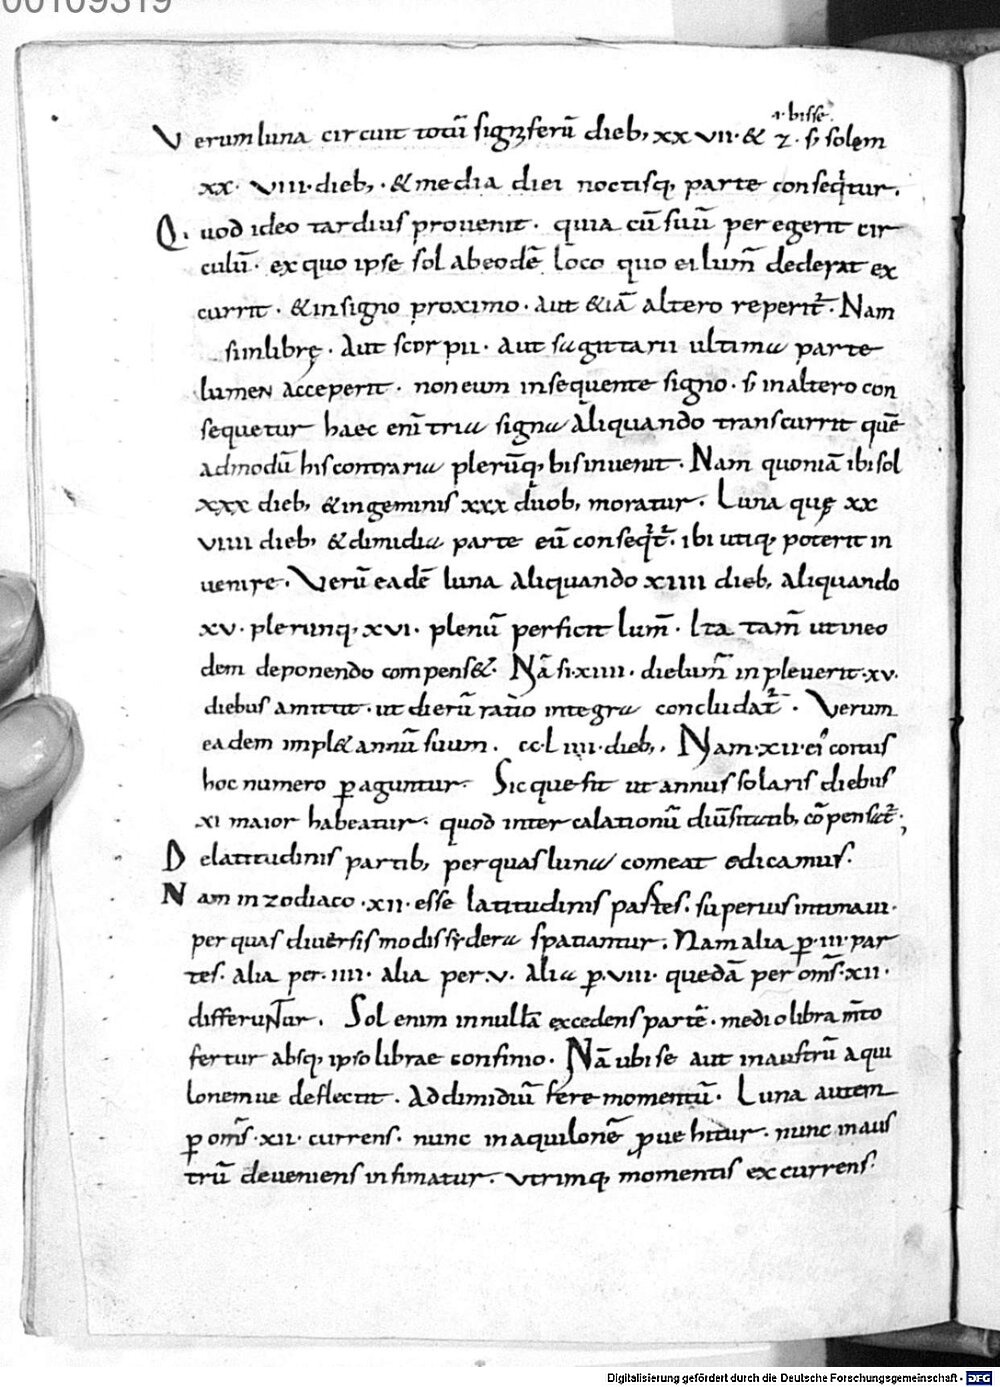 00109319
ı· bisse·
Verum luna circuit totū signiferū dieb; xx vii· & z· s; solem
xx· viii· dieb;· & media diei noctisq; parte conseqͥtur.
Quod ideo tardius prouenit· quia cū suū peregerit cir
culū· ex quo ipse sol ab eodē loco quo ei lum̄ dederat ex
currit· & in signo proximo· aut &iā altero reperit᷑· Nam
si in librę· aut scorpii· aut sagittarii ultima parte
lumen acceperit· non eum insequente signo· s; in altero con
sequetur haec eni̅ tria signa aliquando transcurrit quē
admodū his contraria plerūq; bis inuenit· Nam quoniā ibi sol
xxx dieb; & in geminis xxx duob; moratur· Luna quę xx
viiii dieb; & dimidia parte eū conseqͥt᷑· ibi utiq; poterit in
uenire· Verū eadē luna aliquando xiiii dieb; aliquando
xv· plerunq; xvi· plenū perficit lum̄· Ita tam̄ ut in eo
dem deponendo compens&· Nā si· xiiii· die lum̄ inpleuerit· xv·
diebus amittit· ut dierū ratio integra concludat᷑· Verum
eadem impl& annū suum· cc·L iiii· dieb;· Nam· xii· ei coitus
hoc numero ꝑaguntur· Sicque fit ut annus solaris diebus
xi maior habeatur· quod intercalationū diu̅sitatib; cōpensat᷑·;
De latitudinis partib; per quas luna comeat edicamus·
Nam in zodiaco· xii· esse latitudinis partes· superius intimaui·
per quas diuersis modis sydera spatiantur· Nam alia ꝑ· iii· par
tes· alia per· iiii· alia per· v· alia ꝑ· viii· quedā per oms̄· xii·
differuntur· Sol enim in nullā excedens partē· medio libram̄to
fertur absq; ipso librae confinio· Nā ubi se aut in austrū aqui
lonemue deflectit· Ad dimidiū fere momentū· Luna autem
ꝑ oms̄· xii· currens· nunc in aquilonē ꝓuehitur· nunc in aus
trū deueniens infimatur· utrimq; momentis excurrens·
Digitalisierung gefördert durch die Deutsche Forschungsgemeinschaft - DFG